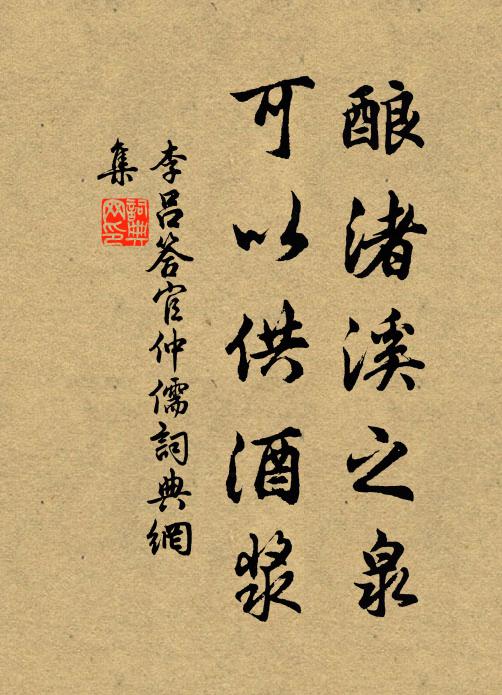 酿渚溪之泉
可以供酒漿
李吕答官仲儒詞典網
集
詞典
网印